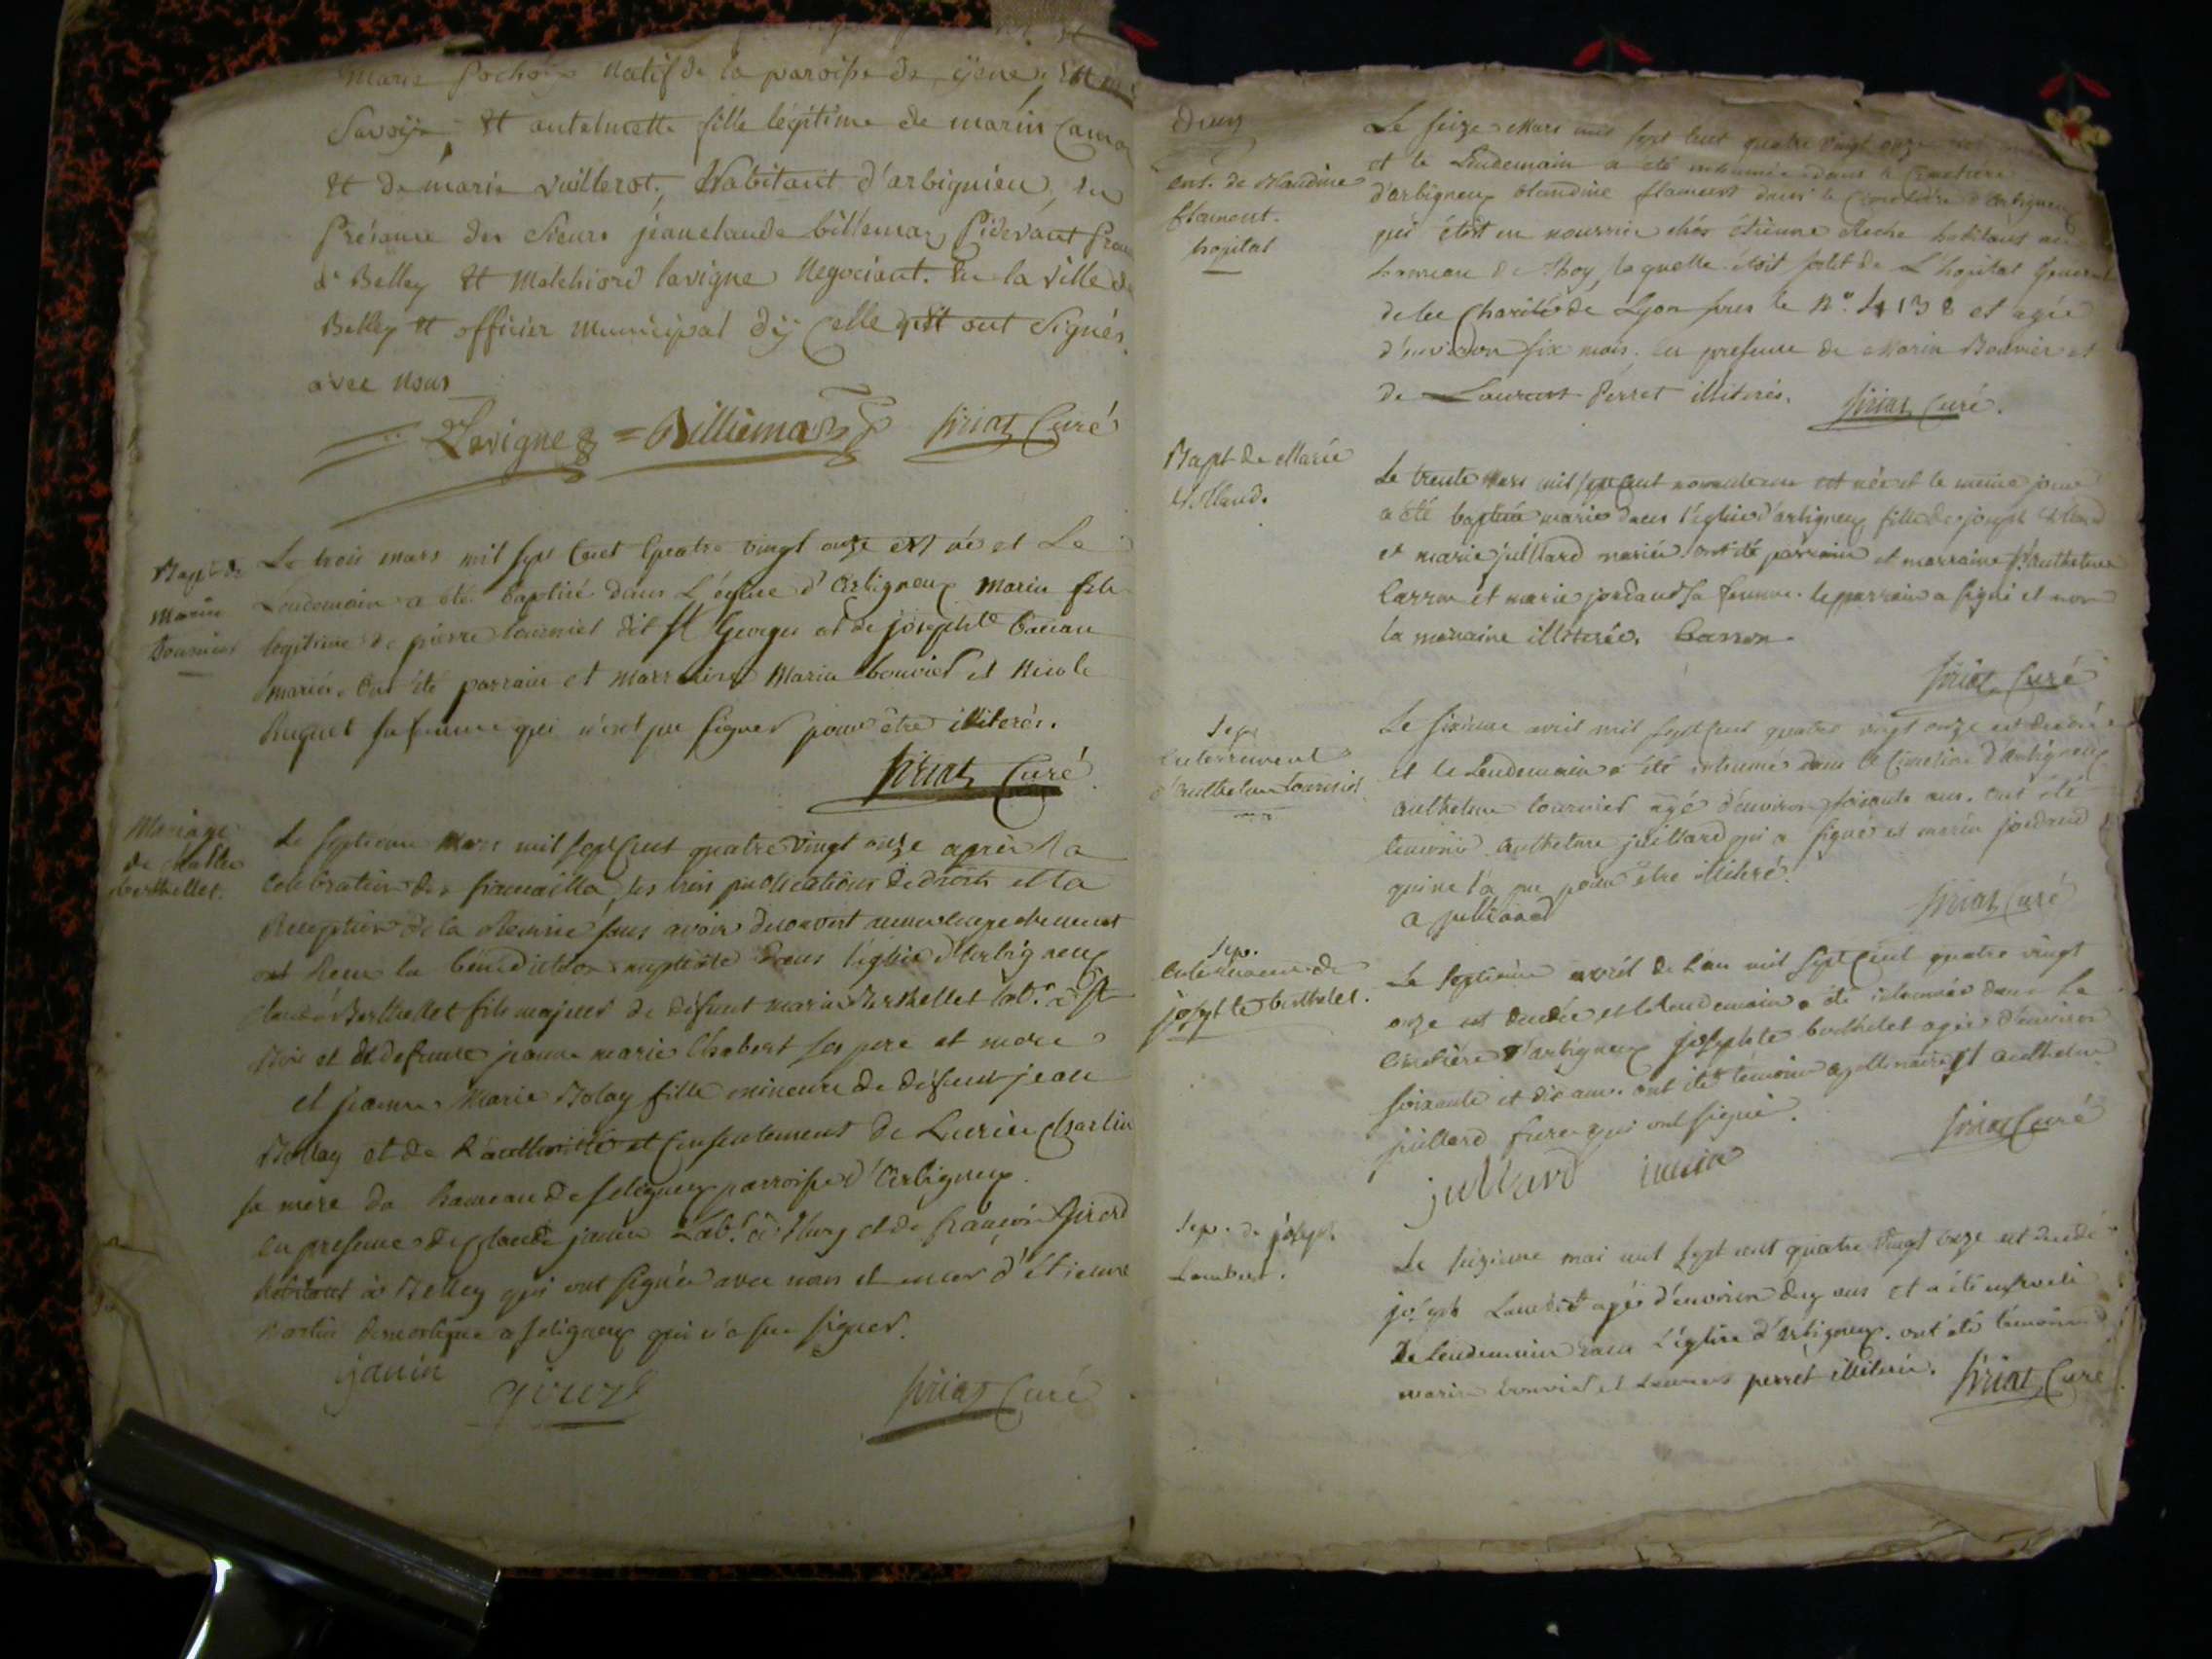 marie natif de la paroisse de yene, en
Savoÿe, Et antelmette fille légitime de marin
Et de marie vuillerot, Habitant d'arbignieu, en
Présance des Sieurs jeanclaude billemaz Cidevant
de Belley Et Melchiord lavigne Negociant. En la ville de
Belley Et officier Municipal d'y Celle qui ont Signés
avec nous
Lavigne = Billiemaz Siriat Curé
Bapt de
Marin
tournier
Le trois mars mil sept Cent Quatre vingt onze est né et Le
Lendemain a été baptisé dans L'église d'Arbigneux Marin fils
legitime de pierre tournier dit St Georges et de josephte
mariés. Ont été parrain et marraine Marin bouvier et Nicole
Ruguet sa femme qui n'ont pu signer pour être illiterés.
Siriat Curé
Mariage
de
berthellet.
Le septieme Mars mil sept Cent quatre vingt onze après la
Célébration des fiancailles, les trois publications de droits et la
Reception de la Remise sans avoir decouvert aucun empechement
ont Recu la bénédiction nuptiale dans l'église d'Arbigneux
Claude Berthellet fils majeur de défunt marin Berthellet lab.r à St
Bois et de defunte jeanne marie Chabert ses pere et mere
et jeanne Marie Bolay fille mineure de défunt jean
Bollay et de L'authorité et Consentement de Lucrèce Charlin
sa mere du hameau de seligneux parroisse d'Arbigneux.
en presence de Claude janin Lab.r à Thuy et de françois Girerd
habitant à Belley qui ont signés avec nous et encor d'étienne
martin domestique a seligneux qui n'a su signer.
janin
Siriat Curé
ent. de Claudine
flament.
hopital
Le seize Mars mil sept cent quatre vingt onze
et le Lendemain a été inhumée dans le Cimetiere
d'arbigneux Claudine flament dans le Cimetière d'Arbigneux
qui étoit en nourrice chés étienne habitant au
hameau de Thoy, laquelle étoit sortit de L'hopital General
de la Charité de Lyon sous le N.º 4138 et agée
d'environ six mois. en presence de Marin Bouvier et
de Laurent Perret illiterés. Siriat Curé.
Bapt de Marie
Le trente Mars mil sept Cent est née et le même jour
a été baptisée marie dans l'église d'arbigneux fille de joseph
et marie juillard mariés ont été parrain et marraine Sr Anthelme
Carron et marie jordand sa femme. le parrain a signé et non
la maraine illiterée. Carron.
Siriat Curé
Sep.
Enterrement
d'Anthelme tournier
Le sixieme avril mil sept Cent quatre vingt onze est decedé
et le Lendemain a été inhumé dans le Cimetiere d'Arbigneux
Anthelme tournier agé d'environ soixante ans. Ont été
temoins Anthelme juillard qui a signé et marin jordand
qui ne l'a pu pour être illitéré.
a julliard
Siriat Curé
Sep.
Enterrement de
josephte berthelet.
Le septieme avril de l'an mil sept Cent quatre vingt
onze est decedée et le lendemain a été inhumée dans le
Cimetière d'arbigneux josephte berthelet agée d'environ
soixante et dix ans. ont été témoins apollinaire et anthelme
juillard freres qui ont signé.
julliard
Siriat Curé
Sep. de joseph
Lambert.
Le sixieme mai mil sept cent quatre vingt onze est decedé
joseph Lambert agé d'environ ans et a été enseveli
Le Lendemain dans L'église d'Arbigneux. ont été témoins
marin bouvier et Laurent perret illiterés. Siriat Curé